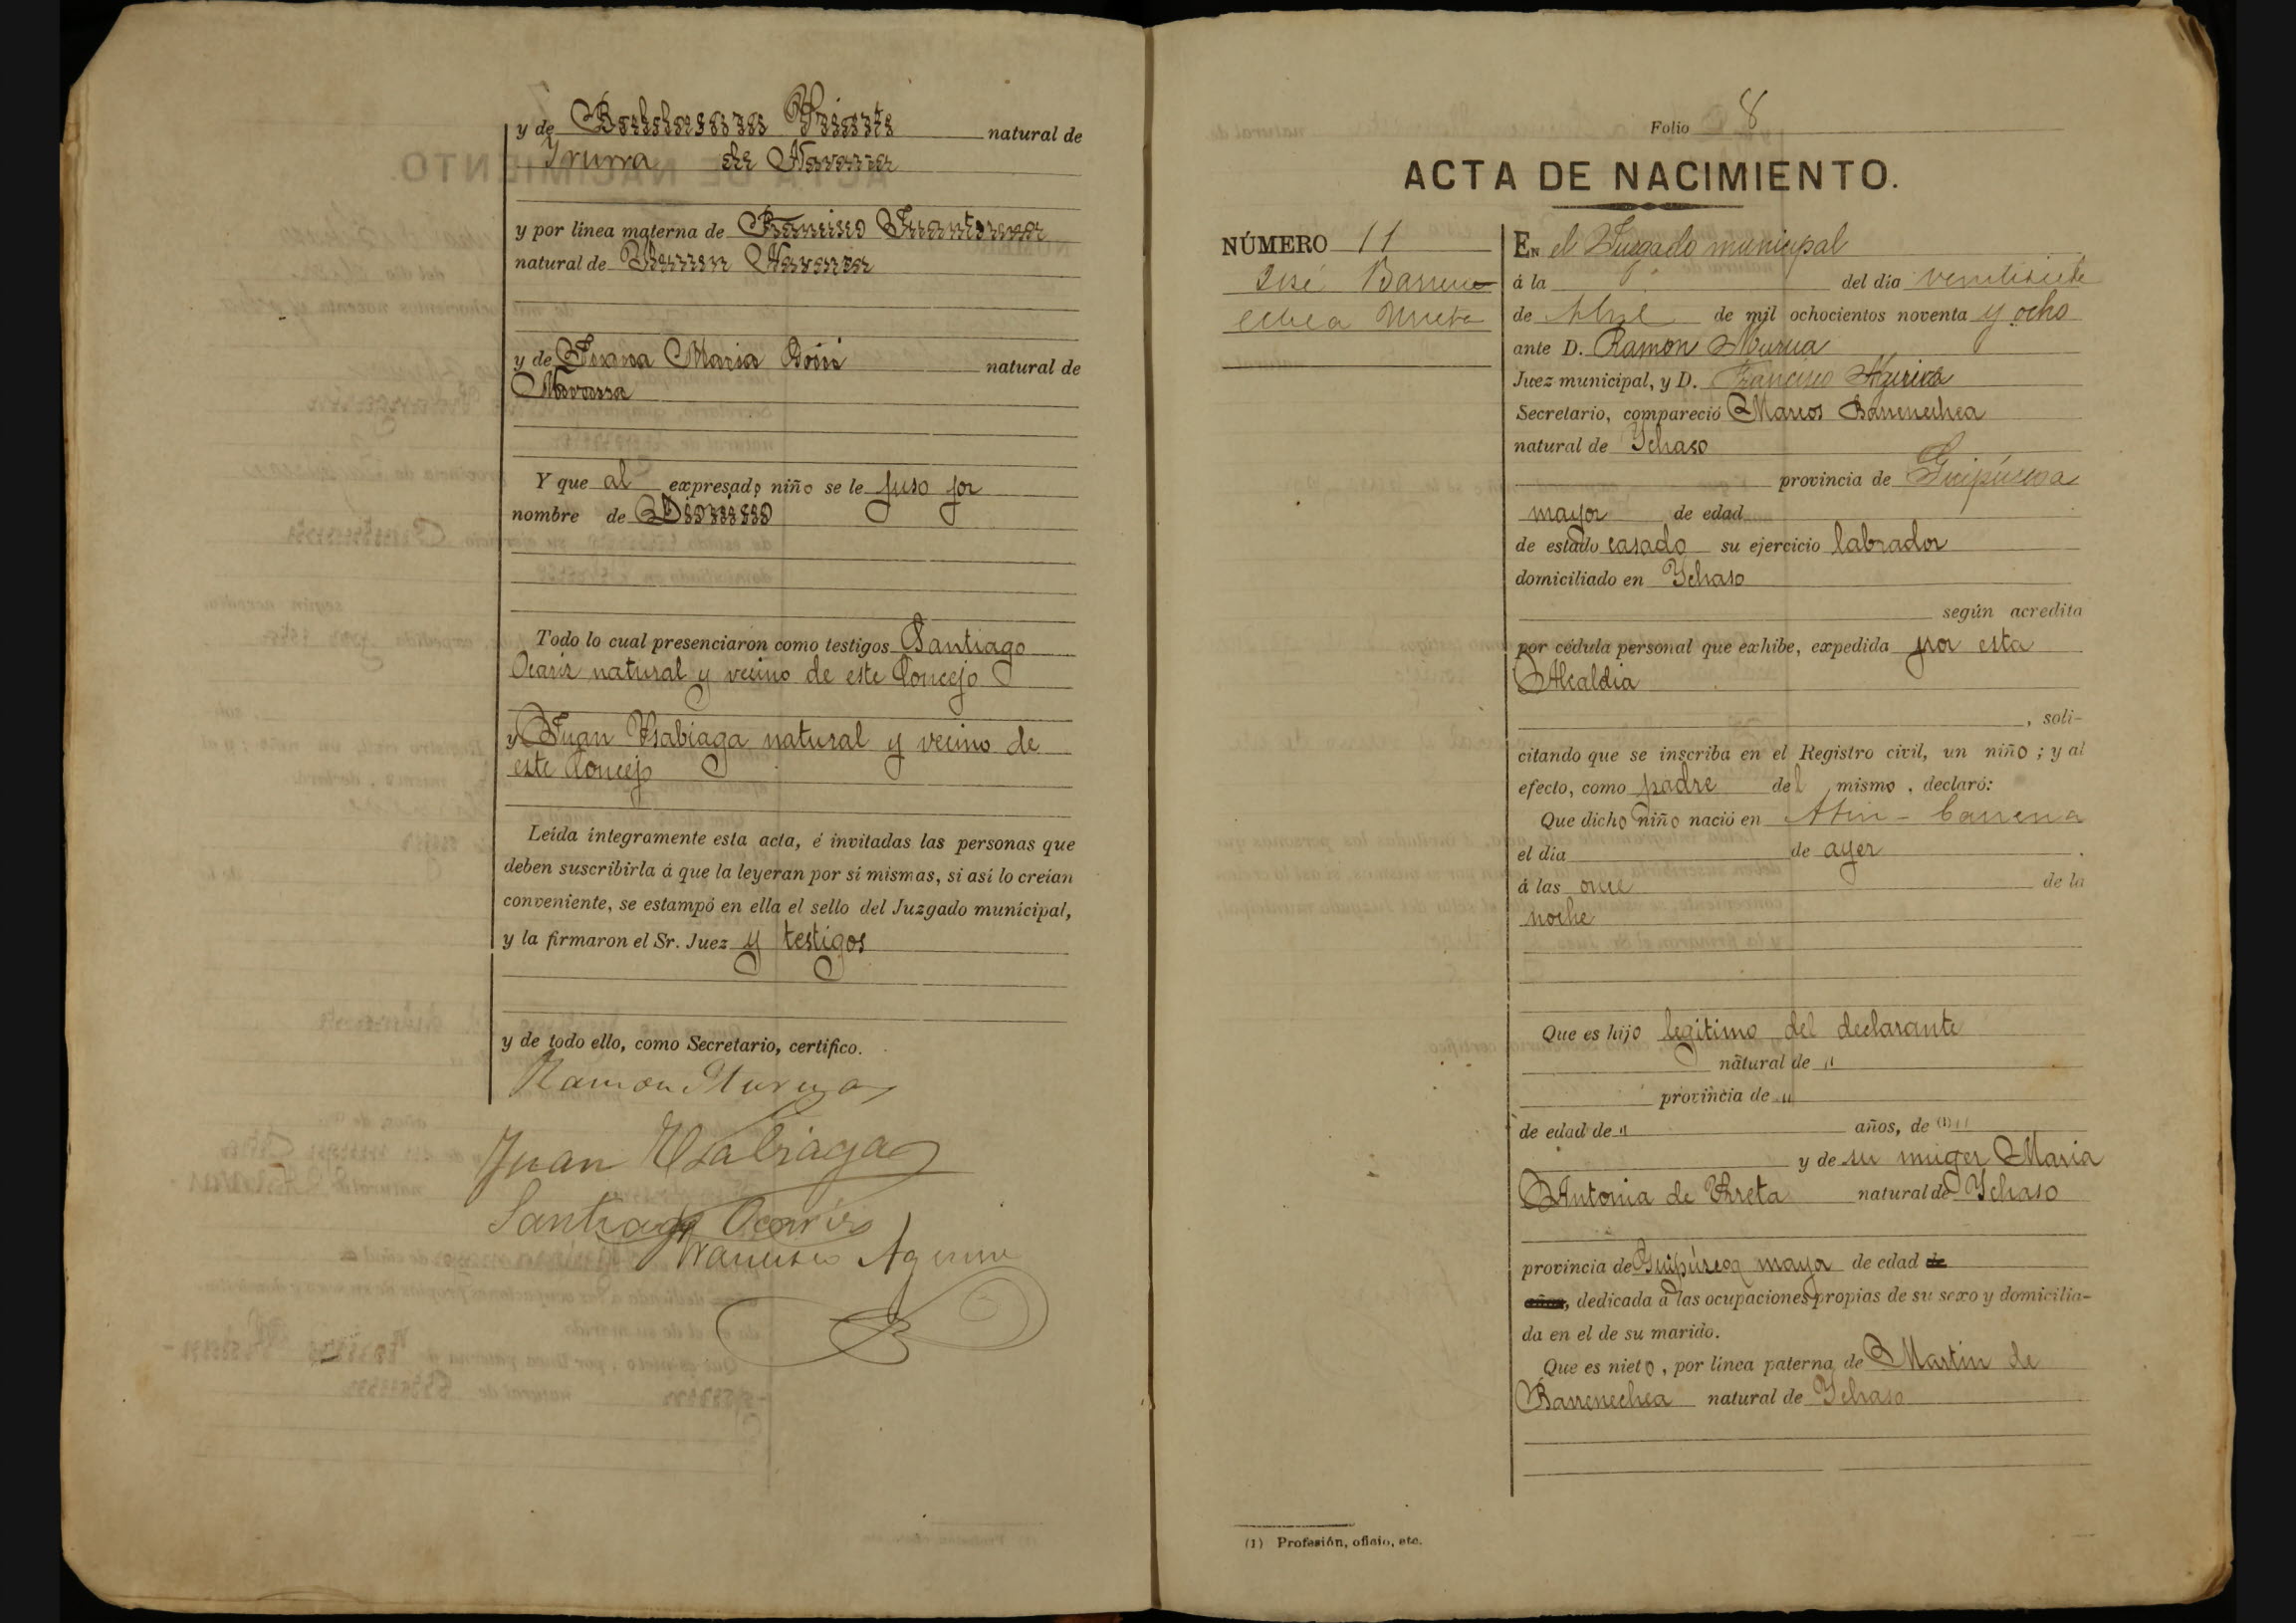 y de natural de
Yrurra de Navarra
y por linea materna de Francisco
natural de Navarra
y de Juana Maria Goñi natural de
Navarra
Y que al expresado niño se le puso por
nombre de Dionisio
Todo lo cual presenciaron como testigos Santiago
Ocariz natural y vecino de este Concejo
y Juan Ysabiaga natural y vecino de
este Concejo
Leída íntegramente esta acta, é invitadas las personas que
deben suscribirla á que la leyeran por sí mismas, si así lo creían
conveniente, se estampó en ella el sello del Juzgado municipal,
y la firmaron el Sr. Juez y testigos
y de todo ello, como Secretario, certifico.
Ramon Murua
Juan Ysabiaga
Santiago Ocariz
Francisco Aguirre
Folio 8
ACTA DE NACIMIENTO.
NÚMERO 11
José Barrene
echea Urreta
EN el Juzgado municipal
á la del dia ventisiete
de Abril de mil ochocientos noventa y ocho
ante D. Ramon Murua
Juez municipal, y D. Francisco Aguirre
Secretario, compareció Marcos Barrenechea
natural de Ychaso
provincia de Guipúzcoa
mayor de edad
de estado casado su ejercicio labrador
domiciliado en Ychaso
según acredita
por cédula personal que exhibe, expedida por esta
Alcaldia
, soli-
citando que se inscriba en el Registro civil, un niño ; y al
efecto, como padre del mismo , declaró:
Que dicho niño nació en Atin-barrena
el dia de ayer
á las once de la
noche
Que es hijo legitimo del declarante
natural de "
provincia de "
de edad de " años, de (1) "
y de su muger Maria
Antonia de Urreta natural de Ychaso
provincia de Guipúzcoa mayor de edad de
años, dedicada á las ocupaciones propias de su sexo y domicilia-
da en el de su marido.
Que es nieto , por línea paterna de Martin de
Barrenechea natural de Ychaso
(1) Profesión, oficio, etc.